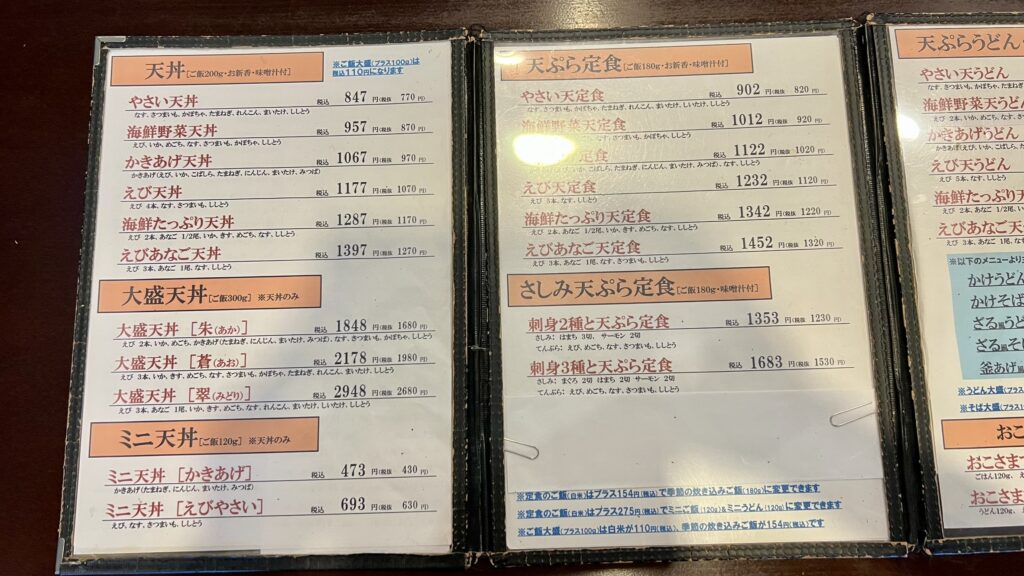 天丼[ご飯200g・お新香・味噌汁付]
※ご飯大盛(プラス100g)は
税込110円になります
やさい天丼 税込 847 円(税抜 770 円)
なす、さつまいも、かぼちゃ、たまねぎ、れんこん、まいたけ、ししとう
海鮮野菜天丼 税込 957 円(税抜 870 円)
えび、いか、めごち、なす、さつまいも、かぼちゃ、ししとう
かきあげ天丼 税込 1067 円(税抜 970 円)
かきあげ(えび、いか、こばしら、たまねぎ、にんじん、まいたけ、みつば)
えび天丼 税込 1177 円(税抜 1070 円)
えび 4本、なす、さつまいも、ししとう
海鮮たっぷり天丼 税込 1287 円(税抜 1170 円)
えび 2本、あなご 1/2尾、いか、きす、めごち、なす、ししとう
えびあなご天丼 税込 1397 円(税抜 1270 円)
えび 3本、あなご 1尾、なす、ししとう
大盛天丼[ご飯300g] ※天丼のみ
大盛天丼 [朱(あか)] 税込 1848 円(税抜 1680 円)
えび 2本、いか、めごち、かきあげ(たまねぎ、にんじん、まいたけ、みつば)、なす、さつまいも、かぼちゃ、ししとう
大盛天丼 [蒼(あお)] 税込 2178 円(税抜 1980 円)
えび 3本、いか、きす、めごち、なす、さつまいも、かぼちゃ、たまねぎ、れんこん、まいたけ、ししとう
大盛天丼 [翠(みどり)] 税込 2948 円(税抜 2680 円)
えび 3本、あなご 1尾、いか、きす、めごち、なす、れんこん、まいたけ、しいたけ、ししとう
ミニ天丼[ご飯120g] ※天丼のみ
ミニ天丼 [かきあげ] 税込 473 円(税抜 430 円)
かきあげ(たまねぎ、にんじん、まいたけ、みつば)
ミニ天丼 [えびやさい] 税込 693 円(税抜 630 円)
えび、なす、さつまいも、ししとう
天ぷら定食[ご飯180g・お新香・味噌汁付]
やさい天定食 税込 902 円(税抜 820 円)
なす、さつまいも、かぼちゃ、たまねぎ、れんこん、まいたけ、しいたけ、ししとう
海鮮野菜天定食 税込 1012 円(税抜 920 円)
さつまいも、かぼちゃ、ししとう
定食 税込 1122 円(税抜 1020 円)
こばしら、たまねぎ、にんじん、まいたけ、みつば)、なす、ししとう
えび天定食 税込 1232 円(税抜 1120 円)
えび 5本、なす、ししとう
海鮮たっぷり天定食 税込 1342 円(税抜 1220 円)
えび 2本、あなご 1/2尾、いか、きす、めごち、なす、ししとう
えびあなご天定食 税込 1452 円(税抜 1320 円)
えび 3本、あなご 1尾、なす、ししとう
さしみ天ぷら定食[ご飯180g・味噌汁付]
刺身2種と天ぷら定食 税込 1353 円(税抜 1230 円)
さしみ: はまち 3切、サーモン 2切
てんぷら: えび、めごち、なす、さつまいも、ししとう
刺身3種と天ぷら定食 税込 1683 円(税抜 1530 円)
さしみ: まぐろ 2切 はまち 2切 サーモン 2切
てんぷら: えび、めごち、なす、さつまいも、ししとう
※定食のご飯(白米)はプラス154円(税込)で季節の炊き込みご飯(180g)に変更できます
※定食のご飯(白米)はプラス275円(税込)でミニご飯(120g)&ミニうどん(120g)に変更できます
※ご飯大盛(プラス100g)は白米が110円(税込)、季節の炊き込みご飯が154円(税込)です
天ぷらうどん
やさい天うどん
なす、さつまいも、かぼちゃ、
海鮮野菜天うどん
えび 2本、いか、めごち、な
かきあげうどん
かきあげ(えび、いか、こばし
えび天うどん
えび 5本、なす、ししとう
海鮮たっぷり天
えび 2本、あなご 1/2
えびあなご天
えび 3本、あなご 1尾、な
※以下のメニューより
かけうどん
かけそば
ざる風うど
ざる風そば
釜あげ風
※うどん大盛(プラス
※そば大盛(プラス1
おこ
おこさま
ごはん120g、
おこさま
うどん120g、